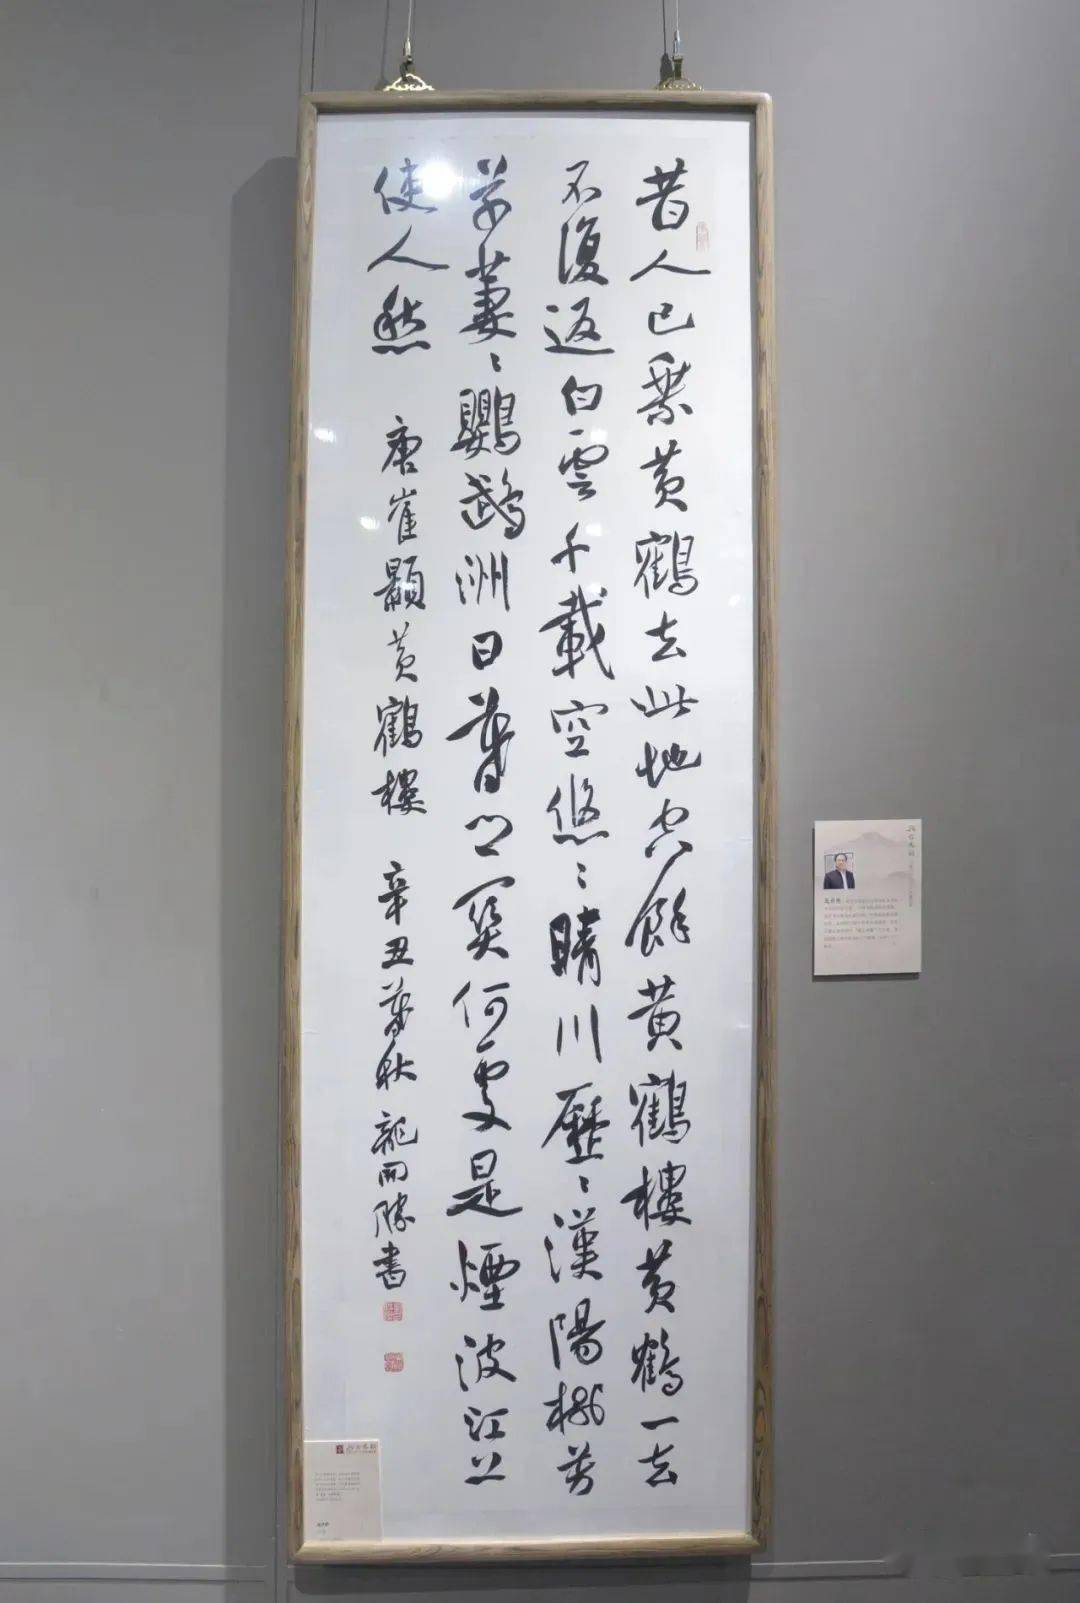 昔人已乘黄鶴去此地空餘黄鶴樓黄鶴一去
不復返白雲千載空悠〻晴川歷〻漢陽樹芳
草萋〻鸚鵡洲日暮鄉關何處是煙波江上
使人愁 唐崔顥黄鶴樓 辛丑暮秋 龍開勝書